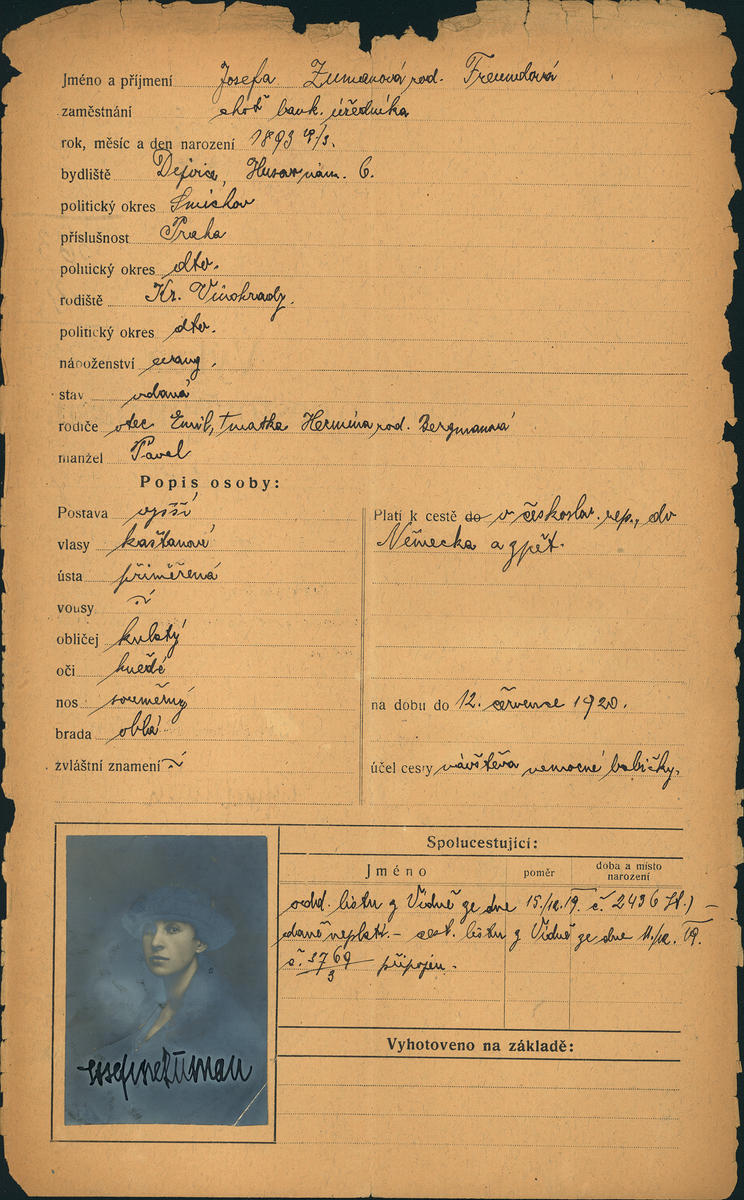 Jméno a příjmení Josefa Zumanová rod. Freundová
zaměstnání choť bank. úředníka
rok, měsíc a den narození 1893 9/3.
bydliště Dejvice, Husovo nám. 6.
politický okres Smíchov
příslušnost Praha
politický okres dto.
rodiště Kr. Vinohrady.
politický okres dto.
náboženství evang.
stav vdaná
rodiče otec Emil, † matka Hermína rod. Bergmanová
manžel Pavel
Popis osoby:
Postava vyšší
vlasy kaštanové
ústa přiměřená
vousy
obličej kulatý
oči hnědé
nos souměrný
brada oblá
zvláštní znamení
Platí k cestě do v českoslov. rep., do
Německa a zpět.
na dobu do 12. července 1920.
účel cesty návštěva nemocné babičky.
Spolucestující:
Jméno poměr doba a místo narození
odd. listu z Vídně ze dne 15./12.19. č. 2436
daně neplat. - cest. listu z Vídně ze dne 11./12. 19.
č. 3769/3 připojen.
Vyhotoveno na základě: